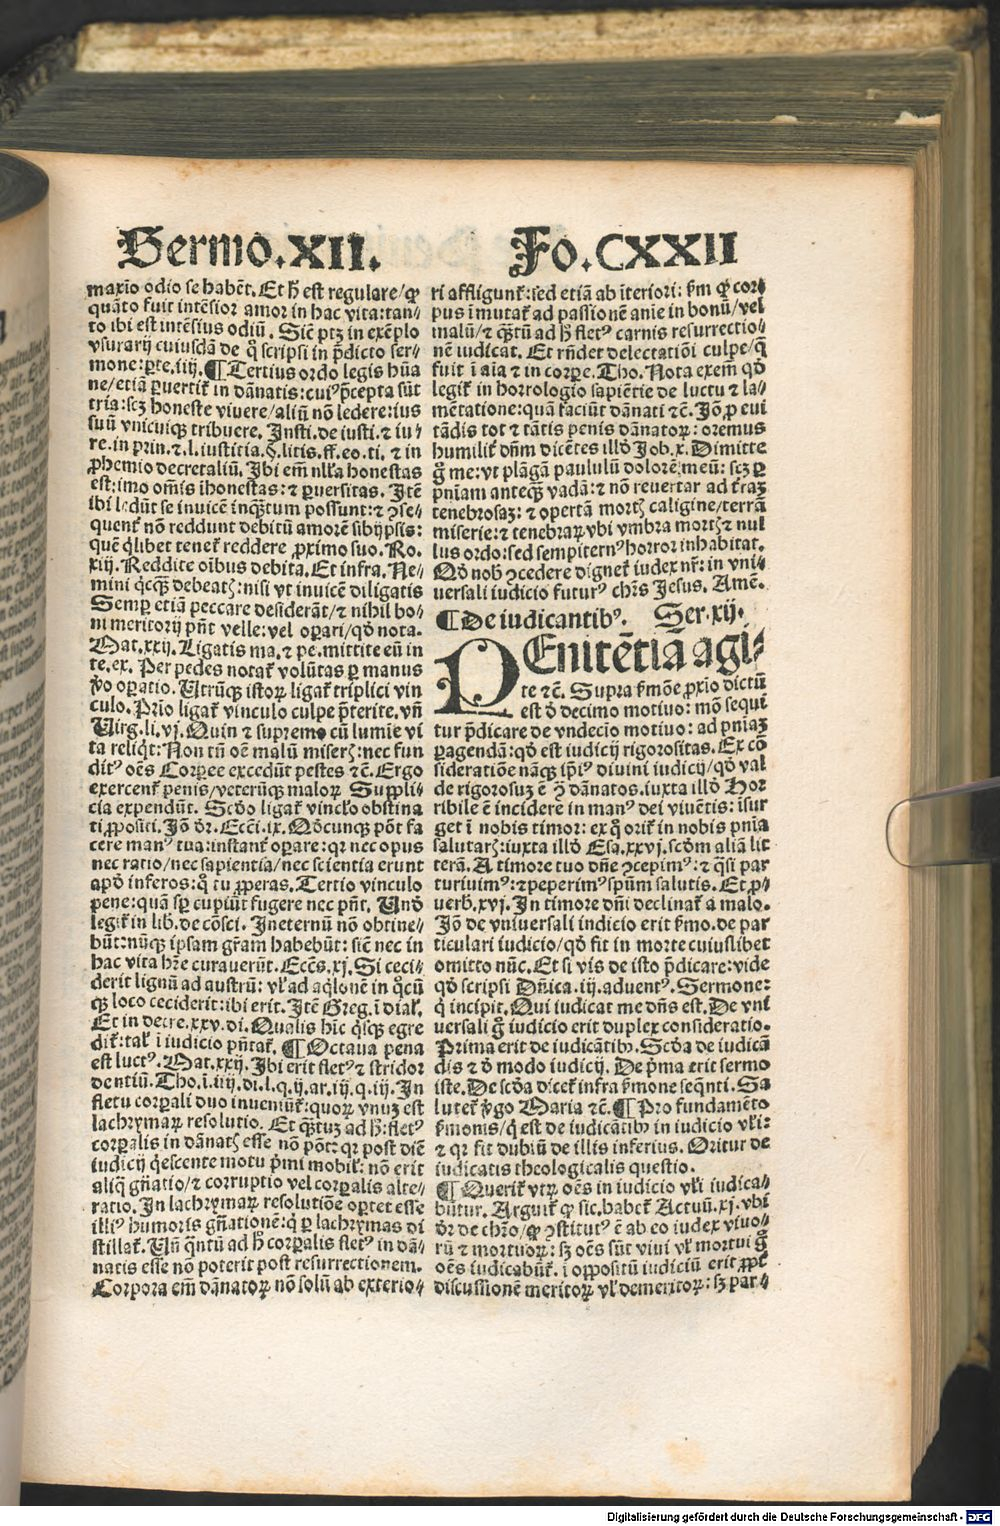 Sermo.XII. Fo.CXXII
maxīo odio se habēt. Et ħ est regulare/ꝙ
quāto fuit intēsior amor in hac vita: tan⸗
to ibi est intēsius odiū. Sic̄ ptꝫ in exēplo
vsurarij cuiusdā de q̄ scripsi in p̄dicto ser⸗
mone: ꝑte.iiij. ¶ Tertius ordo legis hūa
ne/etiā ꝑuertit᷑ in dānatis: cuiꝰ p̄cepta sūt
tria: scꝫ honeste vivere/aliū nō ledere: ius
suū vnicuiqꝫ tribuere. Insti. de iusti. ⁊ iu⸗
re. in prin. ⁊ l. iustitia. §. litis. ff. eo. ti. ⁊ in
ꝓhemio decretaliū. Ibi em̄ nlla honestas
est: imo om̄is ihonestas: ⁊ ꝑuersitas. Itē
ibi ledūt se invicē inqꝫtum possunt: ⁊ ꝯse⸗
quent᷑ nō reddunt debitū amorē sibijpsis:
quē q̇libet tenet᷑ reddere ꝓximo suo. Ro.
xiij. Reddite oībus debita. Et infra. Ne⸗
mini q̇cqꝫ debeatꝭ: nisi vt invicē diligatis
Semꝑ etiā peccare desiderāt/⁊ nihil bo⸗
ni meritorij pn̄t velle: vel oꝑari/qd̓ nota.
Mat. xxij. Ligatis ma. ⁊ pe. mittite eū in
te. ex. Per pedes notat᷑ volūtas ꝑ manus
ꝟo oꝑatio. Utrūqꝫ istoꝝ ligat᷑ triplici vin
culo. Prīo ligat᷑ vinculo culpe p̄terite. vn̄
Virg. li. vj. Quin ⁊ supremo cū lumīe vi
ta reliq̇t: Non tn̄ oē malū miserꝭ: nec fun
ditꝰ oēs Corꝑee excedūt pestes ⁊c̄. Ergo
exercent᷑ penis/veterūqꝫ maloꝝ Suppli⸗
cia expendūt. Scd̓o ligat᷑ vinc̄lo obstina
ti ꝓpositi. Iō dr̄. Eccī. ix. Qd̓cunqꝫ pōt fa
cere manꝰ tua: instant᷑ oꝑare: qꝛ nec opus
nec ratio/nec sapientia/nec scientia erunt
apd̓ inferos: q̄ tu ꝓꝑeras. Tertio vinculo
pene: quā sꝑ cupiūt fugere nec pn̄t. Und̓
legit᷑ in lib. de cōsci. Ineternū nō obtine⸗
būt: nūqꝫ ipsam gr̄am habebūt: sic̄ nec in
hac vita hr̄e curauerūt. Eccēs. xj. Si ceci⸗
derit lignū ad austrū: vl᷑ ad aq̇lonē in q̄cū
qꝫ loco ceciderit: ibi erit. Itē Greg. ī dial᷑.
Et in decre. xxv. di. Qualis hīc q̇sqꝫ egre
dit᷑: tal᷑ ī iudicio pn̄tat᷑. ¶ Octaua pena
est luctꝰ. Mat. xxij. Ibi erit fletꝰ ⁊ stridor
dentiū. Tho. i. iiij. di. l. q. ij. ar. iij. q. iij. In
fletu corꝑali duo inueniūt᷑: quoꝝ vnuꝫ est
lachrymaꝝ resolutio. Et qꝫtuꝫ ad ħ: fletꝰ
corꝑalis in dānatꝭ esse nō pōt: qꝛ post diē
iudicij q̇escente motu p̄mi mobil᷑: nō erit
aliq̄ gn̄atio/⁊ corruptio vel corꝑalis alte⸗
ratio. In lachrymaꝝ resolutiōe oꝑtet esse
illiꝰ humoris gn̄ationē: q̄ ꝑ lachrymas di
stillat᷑. Un̄ q̄ntū ad ħ corꝑalis fletꝰ in dā⸗
natis esse nō poterit post resurrectionem.
Corpora em̄ dānatoꝝ nō solū ab exterio⸗
ri affligunt᷑: sed etiā ab īteriori: ẜm qꝙ cor⸗
pus īmutat᷑ ad passionē anīe in bonū/vel
malū/⁊ qꝫtū ad ħ fletꝰ carnis resurrectio⸗
nē iudicat. Et rn̄det delectatiōi culpe/q̄
fuit ī aīa ⁊ in corꝑe. Tho. Nota exem̄ qd̓
legit᷑ in horrologio sapiētie de luctu ⁊ la⸗
mētatione: quā faciūt dānati ⁊c̄. Iō ꝓ eui
tādis tot ⁊ tātis penis dānatoꝝ: oremus
humilit᷑ dn̄m dicētes illd̓ Job. x. Dimitte
g̊ me: vt plāgā paululū dolorē meū: scꝫ ꝑ
pniam anteqꝫ vadā: ⁊ nō reuertar ad t᷑raꝫ
tenebrosaꝫ: ⁊ opertā mortꝭ caligine/terrā
miserie: ⁊ tenebraꝝ vbi vmbra mortꝭ ⁊ nul
lus ordo: sed sempiternꝰ horror inhabitat.
Qd̓ nob̓ ꝯcedere dignet᷑ iudex nr̄: in vni⸗
uersali iudicio futurꝰ chr̄s Jesus. Amē.
¶ De iudicantibꝰ. Ser. xij.
PEnitētiā agi⸗
te ⁊c̄. Supra ẜmōe ꝓxīo dictū
est d̓ decimo motiuo: mō sequi
tur p̄dicare de vndecio motiuo: ad pniaꝫ
ꝑagendā: qd̓ est iudicij rigorositas. Ex cō
sideratiōe nāqꝫ ip̄iꝰ diuini iudicij/qd̓ val
de rigorosuꝫ ē ꝯ dānatos. iuxta illd̓ Hor
ribile ē incidere in manꝰ dei viuētis: īsur
get ī nobis timor: ex q̄ orit᷑ in nobis pnia
salutarꝭ: iuxta illd̓ Esa. xxvj. scd̓m aliā lit
terā. A timore tuo dn̄e ꝯcepimꝰ: ⁊ q̄si par
turiuimꝰ: ⁊ peperimꝰ sp̄um salutis. Et ꝓ⸗
uerb. xvj. In timore dn̄i declinat᷑ a malo.
Iō de vniuersali iudicio erit ẜmo. de par
ticulari iudicio/qd̓ fit in morte cuiuslibet
omitto nūc. Et si vis de isto p̄dicare: vide
qd̓ scripsi Dn̄ica. iij. aduentꝰ. Sermone:
q̇ incipit. Qui iudicat me dn̄s est. De vni
uersali g̊ iudicio erit duplex consideratio.
Prima erit de iudicātibꝰ. Scd̓a de iudicā
dis ⁊ d̓ modo iudicij. De p̄ma erit sermo
iste. De scd̓a dicet᷑ infra ẜmone seq̄nti. Sa
lutet᷑ ꝟgo Maria ⁊c̄. ¶ Pro fundamēto
ẜmonis/q̇ est de iudicātibꝰ in iudicio vl᷑i:
⁊ qꝛ fit dubiū de illis inferius. Oritur de
iudicatis theologicalis questio.
¶ Querit᷑ vtꝝ oēs in iudicio vl᷑i iudica⸗
būtur. Arguit᷑ ꝙ sic. habet᷑ Actuū. xj. vbi
dr̄ de chro/ꝙ ꝯstitutꝰ ē ab eo iudex viuo⸗
rū ⁊ mortuoꝝ: sꝫ oēs sūt viui vl᷑ mortui g̊
oēs iudicabūt᷑. ī oppositū iudiciū erit ꝓpt᷑
discussionē meritoꝝ vl᷑ demeritoꝝ: sꝫ par⸗
Digitalisierung gefördert durch die Deutsche Forschungsgemeinschaft - DFG